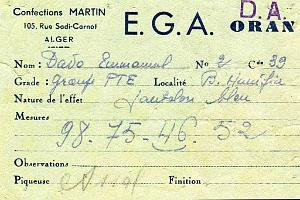 Confections MARTIN
105, Rue Sadi-Carnot
ALGER
E.G.A.
D.A.
ORAN
Nom: Dado Emmanuel Nº 2 Cde 39
Grade: groupe PTE Localité B. Hanifia
Nature de l'effet pantalon bleu
Mesures
98. 75. 46. 52
Observations
Piqueuse Finition